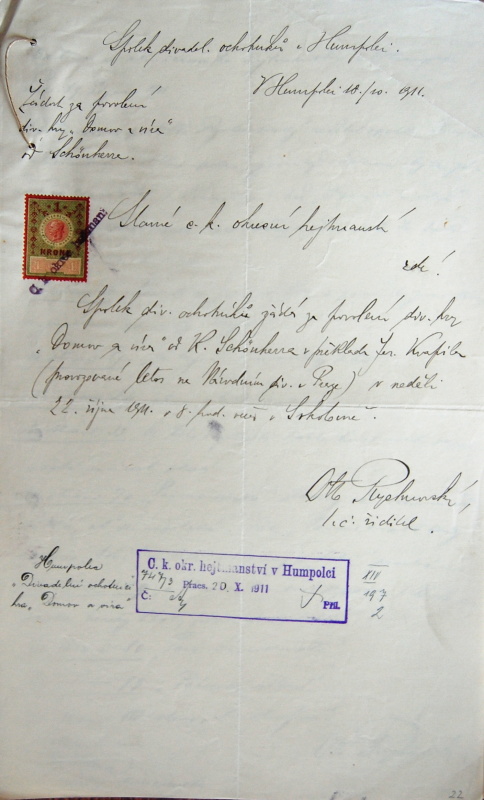 Spolek divadel. ochotníků v Humpolci.
V Humpolci 18./10. 1911.
Žádost za povolení
div. hry „Domov a víra"
od Schönherra.
KRONE
Slavné c. k. okresní hejtmanství
zde!
Spolek div. ochotníků žádá za povolení div. hry
„Domov a víra" od K. Schönherra v překladu Jar. Kvapila
(provozované letos na Národním div. v Praze) v neděli
22. října 1911 o 8. hod. več. v Sokolovně.
Ot. Rychnovský,
t. č. ředitel.
C. k. okr. hejtmanství v Humpolci
Præs. 20. X. 1911
Č:
Příl.
Humpolec
„Divadelní ochotníci"
hra „Domov a víra"
XIV
197
2
22